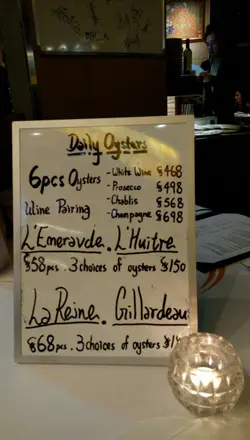 Daily Oysters
6pcs Oysters - White Wine $468
- Prosecco $498
Wine Pairing - Chablis $568
- Champagne $698
L'Emeraude. L'Huitre
$58pcs. 3 choices of oysters $150
La Reine. Gillardeau
$68pcs. 3 choices of oysters